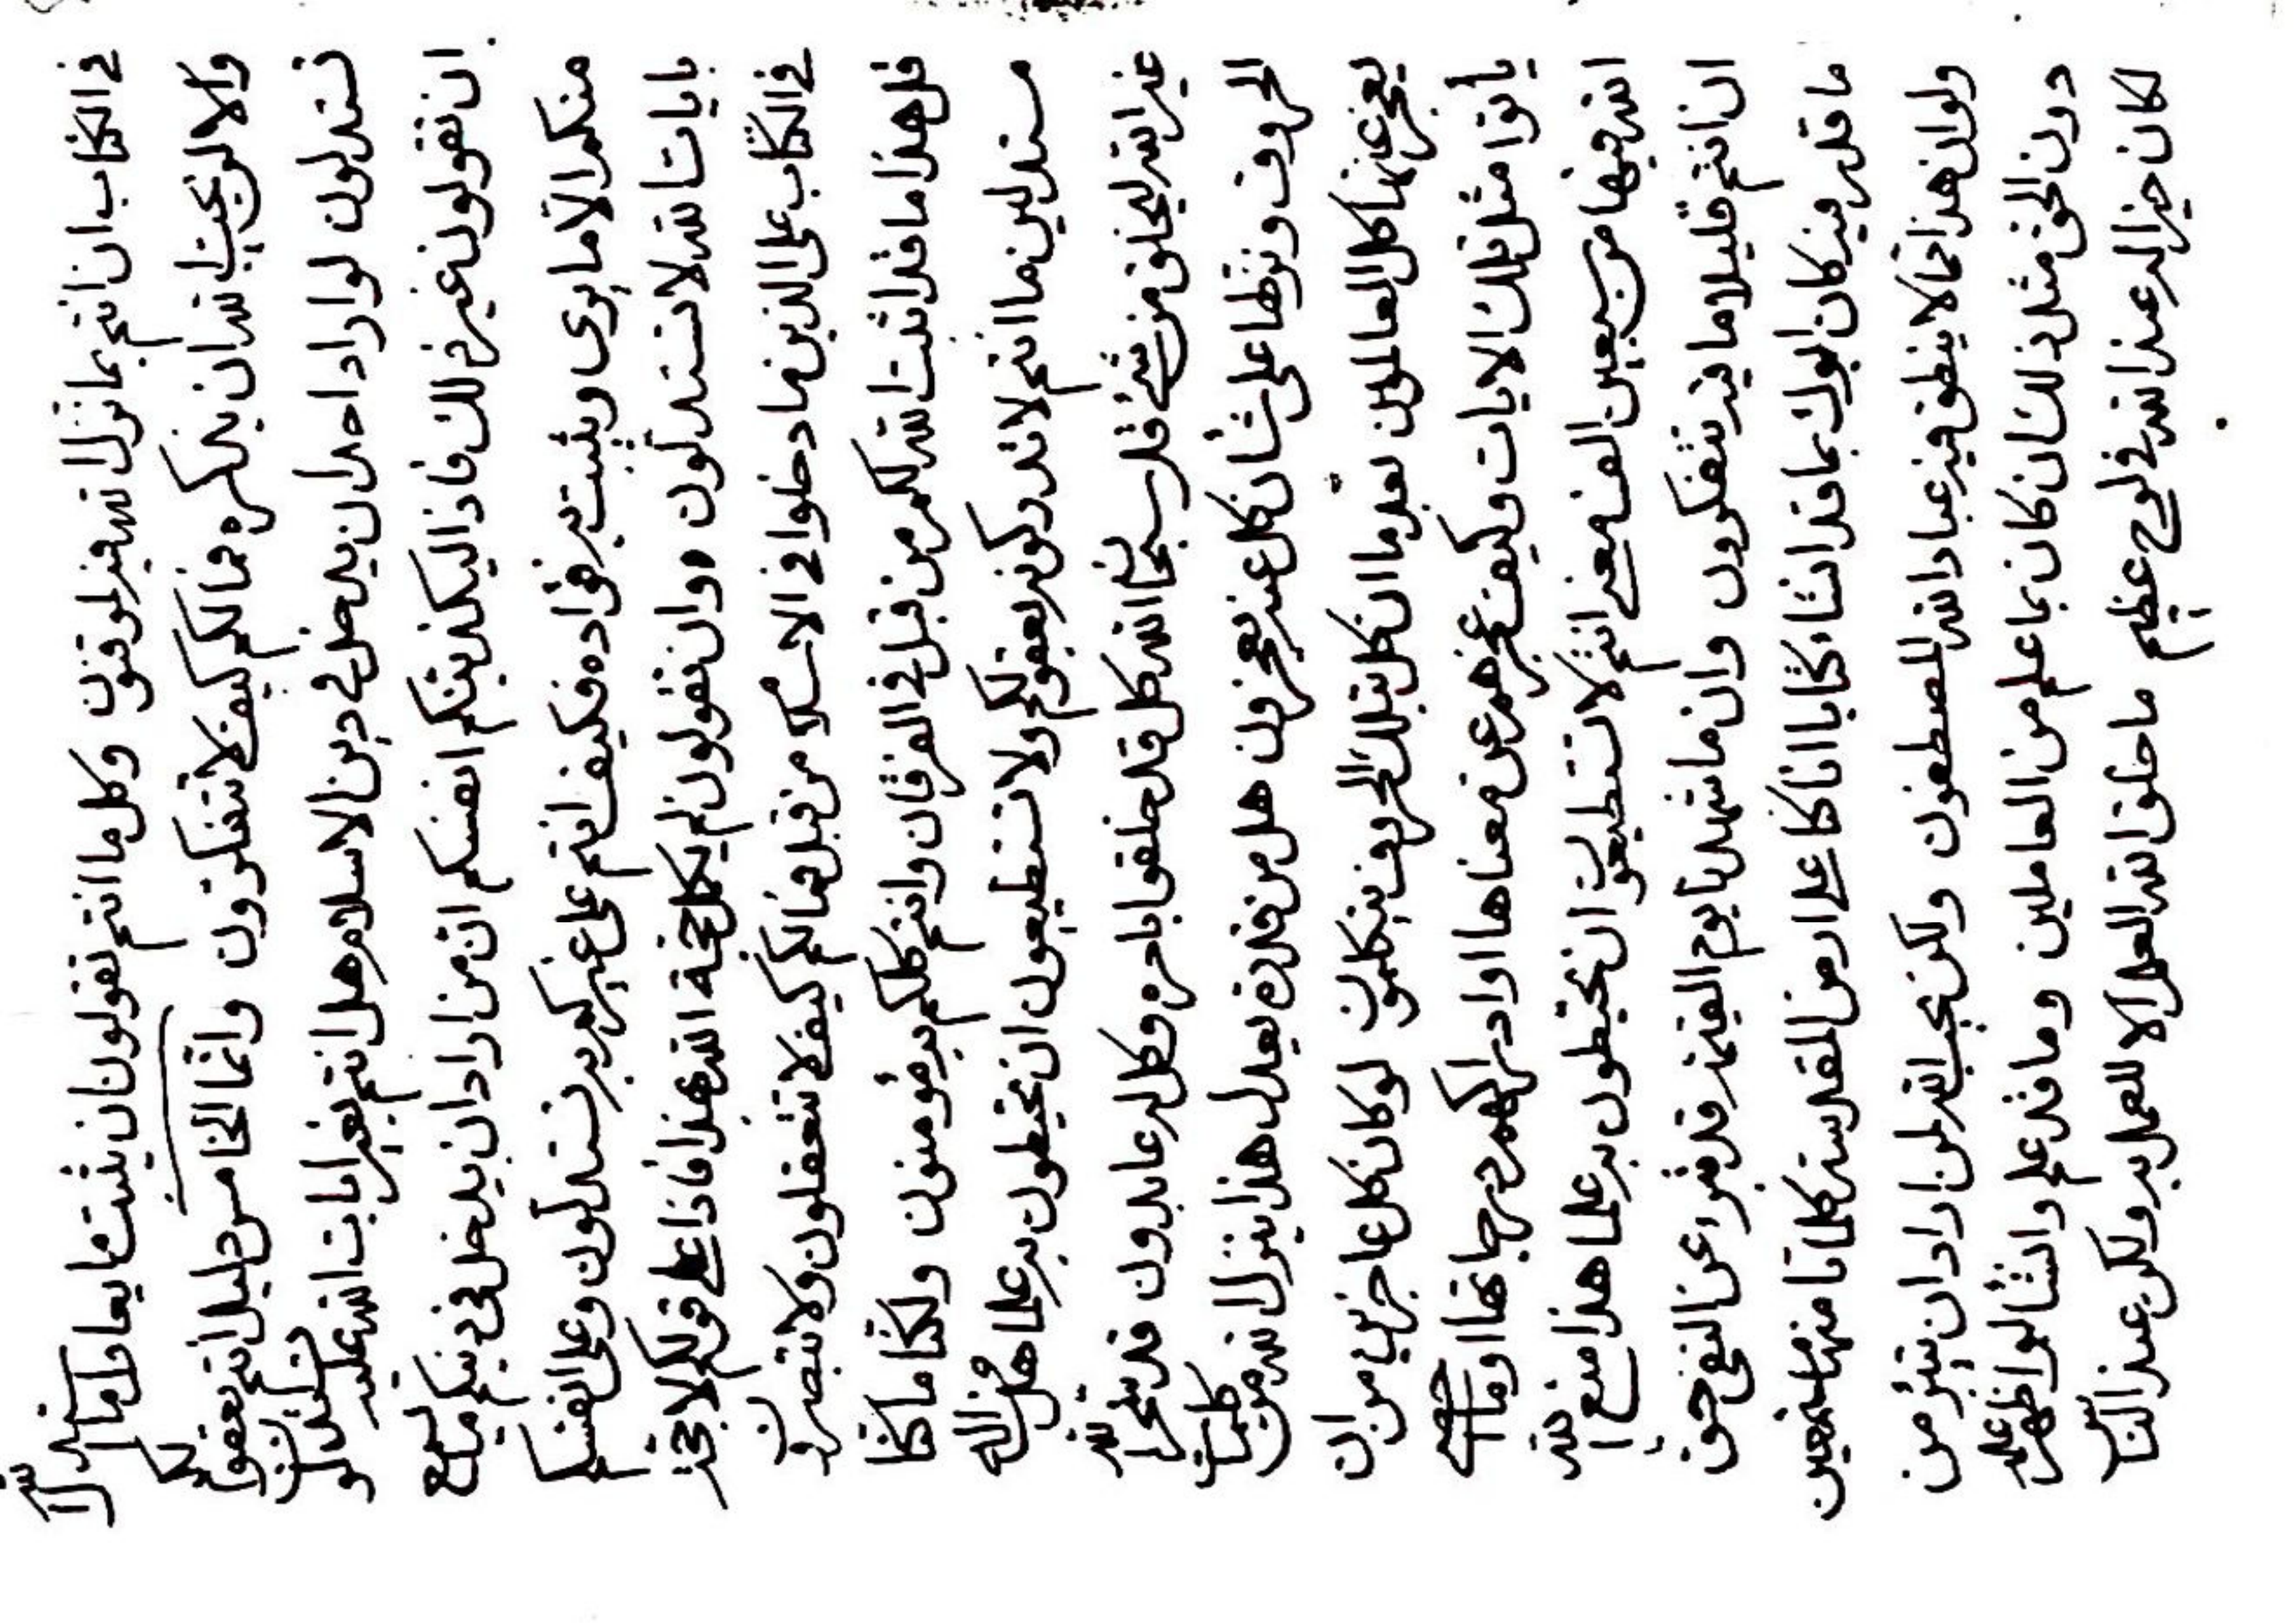 في الكتاب ان انتم بما نزل الله فيه لموقنون وكل ما انتم تقولون ان يثبت ما يعادل ما نزل الله
والا لو يحب الله ان يذكره فما لكم كيف لا تتفكرون وانما الخامس دليل انتم بعقولكم
تستدلون لو اراد احد ان يدخل في دين الاسلام هل انتم بغير ايات الله عليه تستدلون
ان تقولون غير ذلك فاذا ليكذبنكم انفسكم ان من اراد ان يدخل في دينكم ليسمع
منكم الا ما يرى ويثبت به فؤاده فكيف انتم على غيركم به تستدلون وعلى انفسكم
بايات الله لا تستدلون وان تقولون لم يكمل حجة الله هذا فاذا على قولكم لا حجة
في الكتاب على الذين هما دخلوا في الاسلام من قبل فما لكم كيف لا تتعقلون ولا تبصرون
قل هذا ما قد اثبت الله لكم من قبل في الفرقان وانتم كلكم به مؤمنون ولكنا ما كنا
مستدلين ما انتم لا تدركونه بعقولكم ولا تستطيعون ان تحيطون به علما هل من اله
غير الله ليخلق من شئ قل سبحان الله كل قد خلقوا بامره وكل له عابدون قد سخر الله
الحروف ونزلها على شأن كل عنه يعجزون هل من قدرة يعدل هذا ينزل الله من كلمات
يعجز عنها كل العالمون بعد ما ان كل بتلك الحروف يتكلمون لو كان كل عاجزين من ان
يأتوا مثل تلك الايات وكيف عجزهم عن معناها او ادراكهم درجاتها او ما
الله فيها من سبيعين الف معنى انتم لا تستطيعون ان تحيطون به علما هذا صنع الله
ان انتم قليلا ما فيه تتفكرون وان ما شهد يا يوم القيمة قد قرء عن النفي حق
ما قدر فيه كان ابوك بما قد انشاء كتابا انا كنا على ارض المقدسة كلماتا منها متمعين
ولو ان هذا مما لا ينطق فيه عباد الله المصطفون ولكن يحب الله لمن اراد ان يتبرء من
دون الحق مثل ذلك ان كان بما علم من العاملين وما قد علم وانشا لو اظهر عليه
لكان خيرا له عند الله في لوح عظيم ما خلق الله العلم الا للعمل به ولكن عند الناس